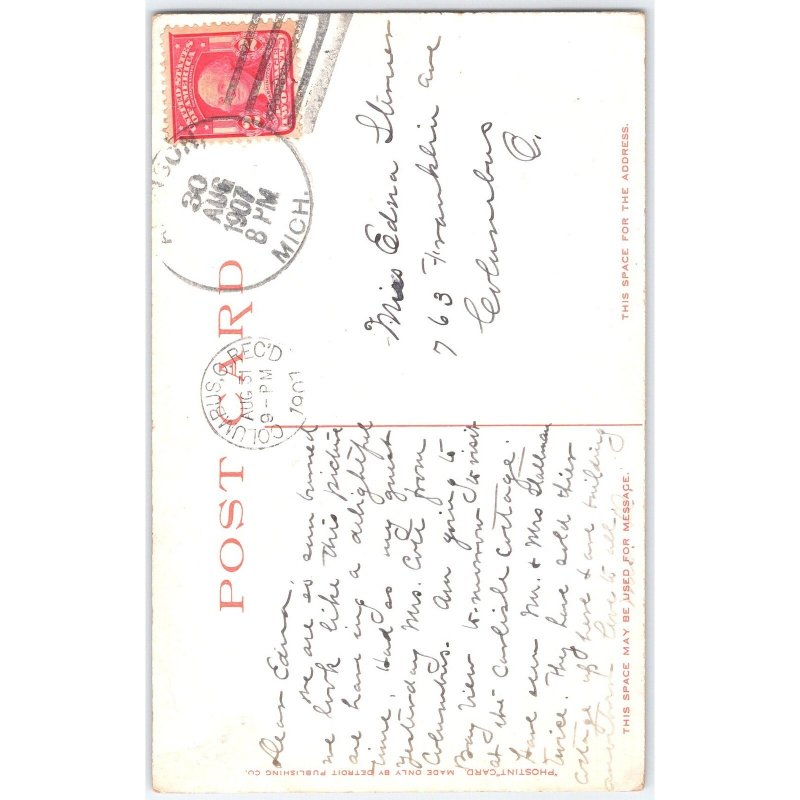 POST CARD
UNITED STATES OF AMERICA
POSTAGE
TWO
2 CENTS 2
30
AUG
1907
8 PM
MICH.
COLUMBUS, O. REC'D
AUG 31
9-PM
1907
Dear Edna,
we are so sun burned
we look like this picture
are having a delightful
time. Had as my guest
yesterday Mrs. Cole from
Columbus. Am going to
Bay View to-morrow to visit
at the Carlisle Cottage.
Have seen Mr. & Mrs Stallman
twice. They have sold their
cottage up here & are building
another. Love to all.
Miss Edna Stimer
763 Franklin ave
Columbus
O.
THIS SPACE MAY BE USED FOR MESSAGE.
THIS SPACE FOR THE ADDRESS.
"PHOSTINT" CARD. MADE ONLY BY DETROIT PUBLISHING CO.